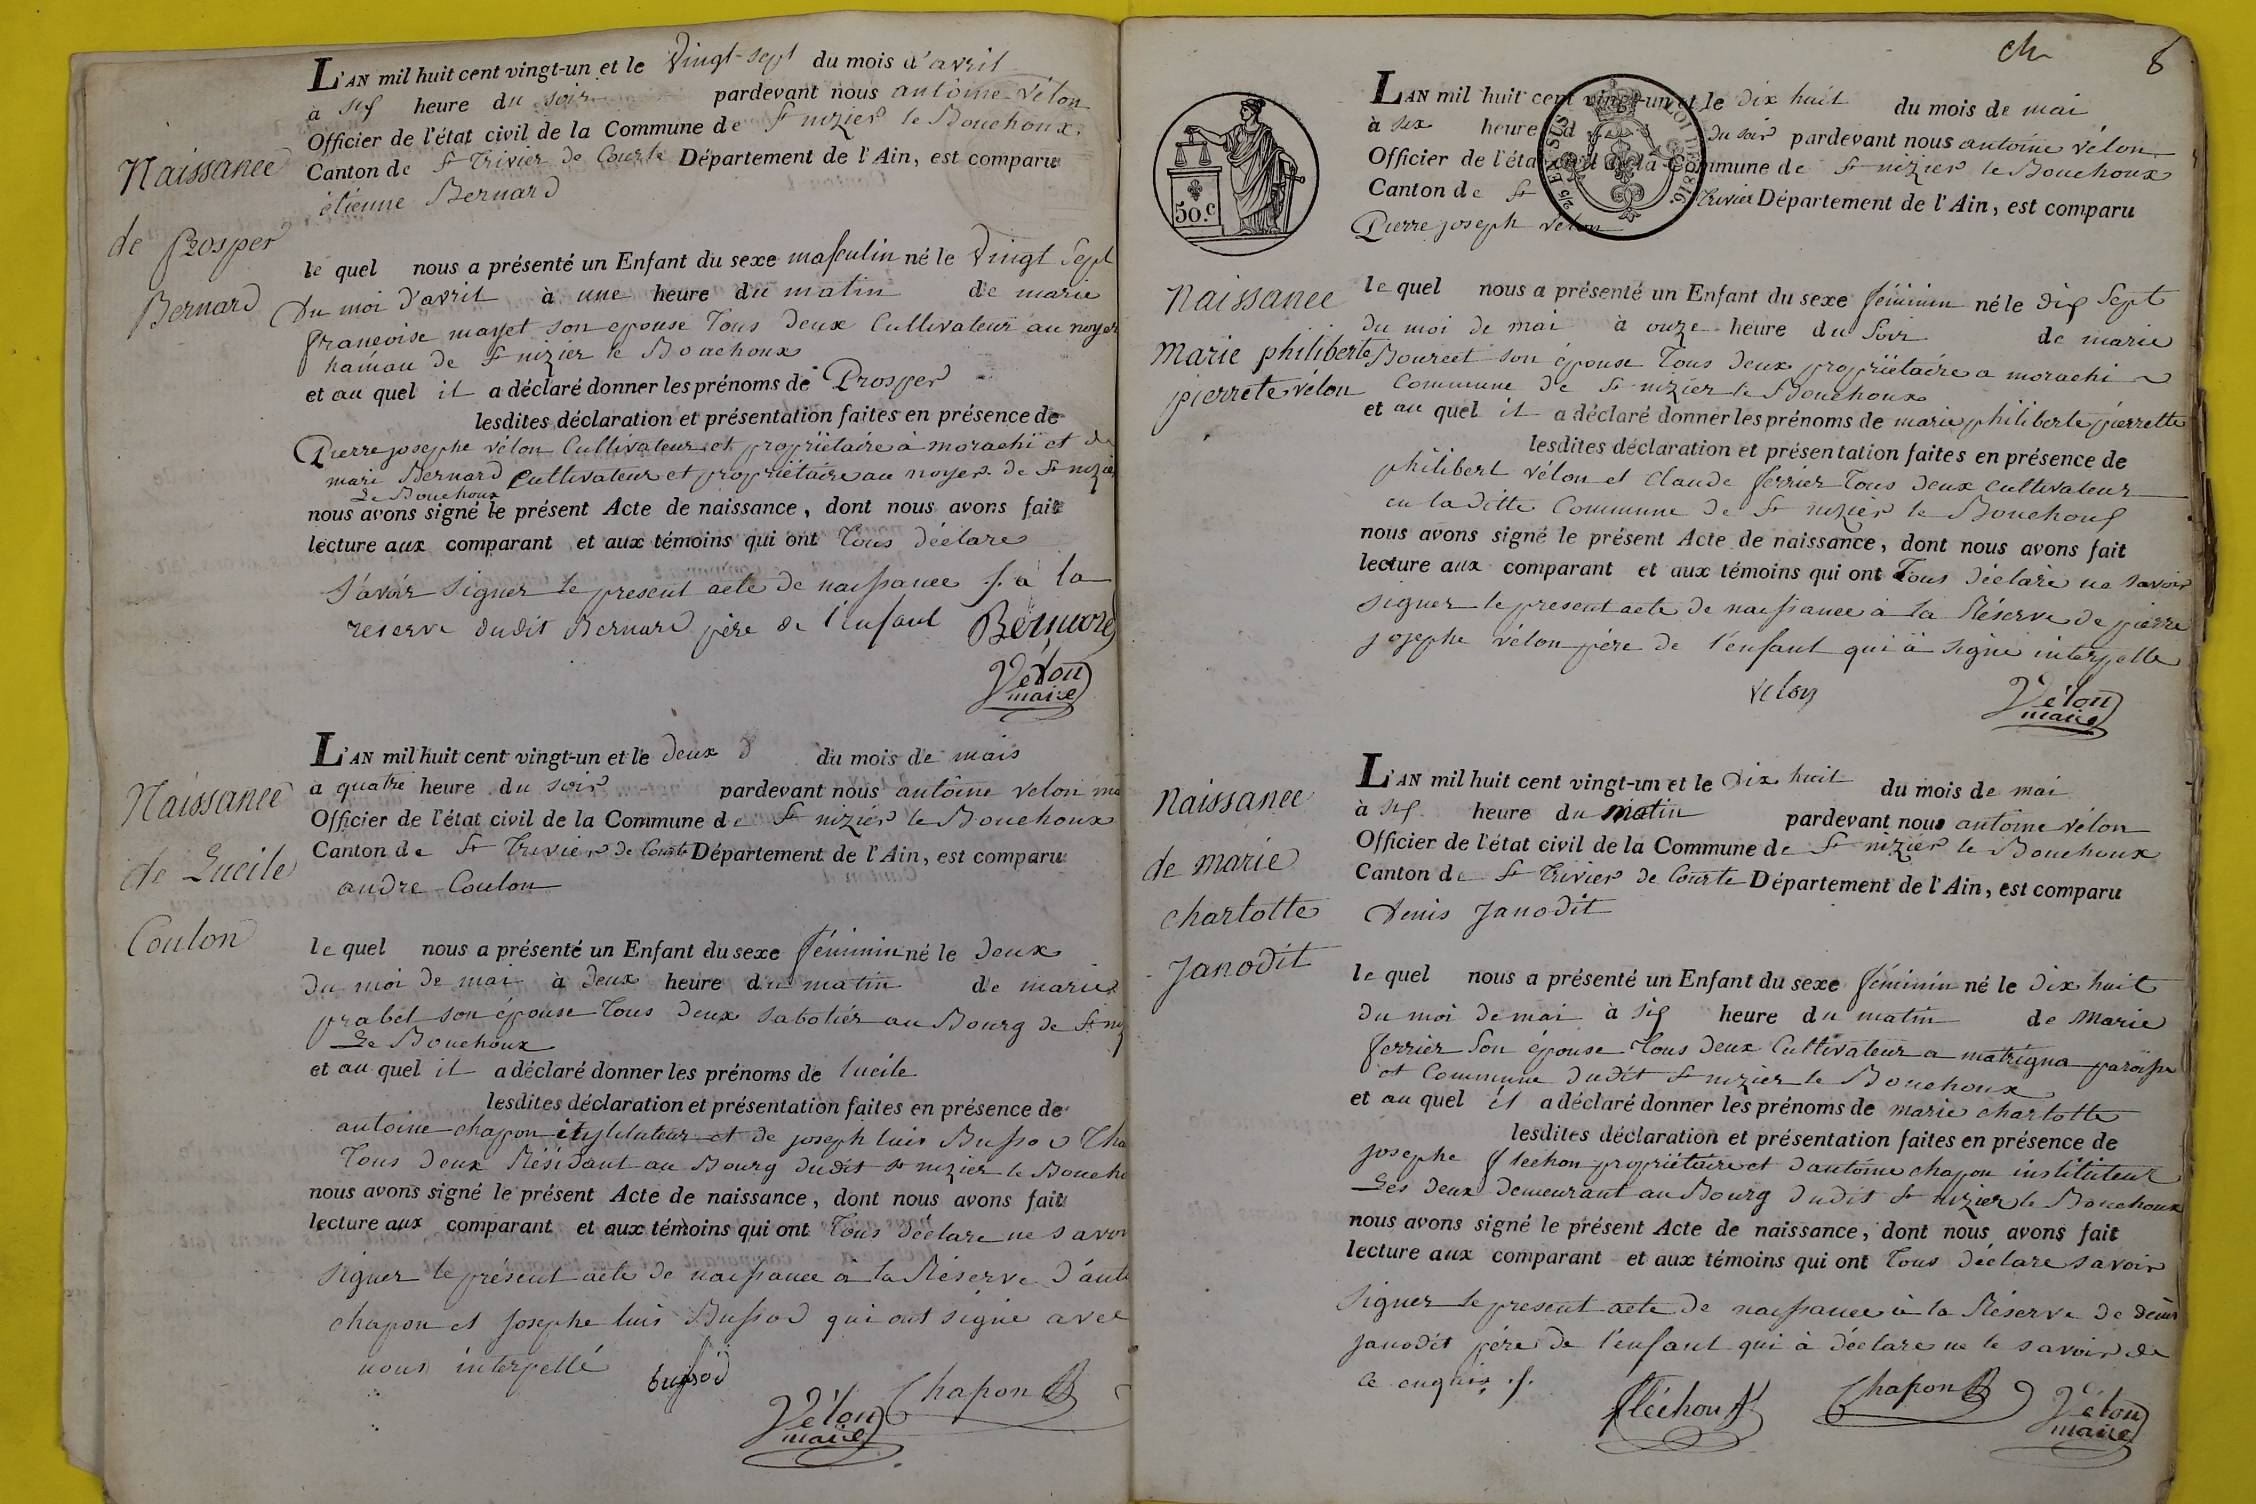 L'AN mil huit cent vingt-un et le Vingt-sept du mois d'avril
à sis heure du soir pardevant nous antoine vélon
Officier de l'état civil de la Commune de St nizier le Bouchoux
Canton de St Trivier de Courte Département de l'Ain, est comparu
étienne Bernard
Naissance
de Prosper
Bernard
le quel nous a présenté un Enfant du sexe masculin né le vingt Sept
du moi d'avril à une heure du matin de marie
francoise mayet son epouse Tous deux Cultivateur au noyer
hamau de St nizier le Bouchoux
et au quel il a déclaré donner les prénoms de Prosper
lesdites déclaration et présentation faites en présence de
Pierre josephe vélon Cultivateur et propriëtaire à morachi et de
mari Bernard Cultivateur et propriëtaire au noyer de St nizier
Le Bouchoux
nous avons signé le présent Acte de naissance, dont nous avons fait
lecture aux comparant et aux témoins qui ont Tous déclare
savoir signer le present acte de naissance à la
reserve dudit Bernard père de l'enfant Bernard
Vélon
maire
L'AN mil huit cent vingt-un et le deux du mois de mais
à quatre heure du soir pardevant nous antoine velon
Officier de l'état civil de la Commune de St nizier le Bouchoux
Canton de St Trivier de Courte Département de l'Ain, est comparu
andre Coulon
Naissance
de Lucile
Coulon
le quel nous a présenté un Enfant du sexe féminin né le deux
du moi de mai à deux heure du matin de marie
prabel son épouse Tous deux sabotiér au Bourg de St
Le Bouchoux
et au quel il a déclaré donner les prénoms de lucile
lesdites déclaration et présentation faites en présence de
antoine chapon et de joseph luis Bussod
Tous deux Résidant au Bourg dudit St nizier le Bouch
nous avons signé le présent Acte de naissance, dont nous avons fait
lecture aux comparant et aux témoins qui ont Tous déclare ne savoir
signer le présent acte de naissance à la Réserve d'ant
chapon et josephe luis Bussod qui ont signé avec
nous interpellé bussod
Vélon Chapon
maire
ch 8
50.c
L'AN mil huit cent vingt-un et le dix huit du mois de mai
à six heure d du soir pardevant nous antoine vélon
Officier de l'état civil de la Commune de St nizier le Bouchoux
Canton de St Trivier Département de l'Ain, est comparu
Pierre joseph vélon
LOI DE 1816.
Naissance
Marie philiberte
pierrete vélon
le quel nous a présenté un Enfant du sexe féminin né le dis Sept
du moi de mai à onze heure du Soir de marie
Bourcet son épouse Tous deux propriëtaire a morachi
Commune de St nizier le Bouchoux
et au quel il a déclaré donner les prénoms de marie philiberte pierrette
lesdites déclaration et présentation faites en présence de
philibert vélon et Claude ferrier Tous deux cultivateur
en la ditte Commune de St nizier le Bouchous
nous avons signé le présent Acte de naissance, dont nous avons fait
lecture aux comparant et aux témoins qui ont Tous déclaré ne savoir
signer le present acte de naissance à la Réserve de pierre
josephe vélon père de l'enfant qui à signé interpelle
velon Vélon
maire
L'AN mil huit cent vingt-un et le dix huit du mois de mai
à sis heure du matin pardevant nous antoine vélon
Officier de l'état civil de la Commune de St nizier le Bouchoux
Canton de St Trivier de Courte Département de l'Ain, est comparu
denis Janodit
Naissance
de marie
charlotte
Janodit
le quel nous a présenté un Enfant du sexe féminin né le dix huit
du moi de mai à sis heure du matin de Marie
ferrier Son épouse Tous deux Cultivateur a matrigna paroisse
et Commune dudit St nizier le Bouchoux
et au quel il a déclaré donner les prénoms de marie charlotte
lesdites déclaration et présentation faites en présence de
josephe fléchon propriétaire et d'antoine chapon instituteur
Les deux demeurant au Bourg dudit St nizier le Bouchoux
nous avons signé le présent Acte de naissance, dont nous avons fait
lecture aux comparant et aux témoins qui ont Tous déclare savoir
signer le present acte de naissance à la Réserve de denis
janodit père de l'enfant qui à déclare ne le savoir de
ce enquis
fléchon Chapon Vélon
maire